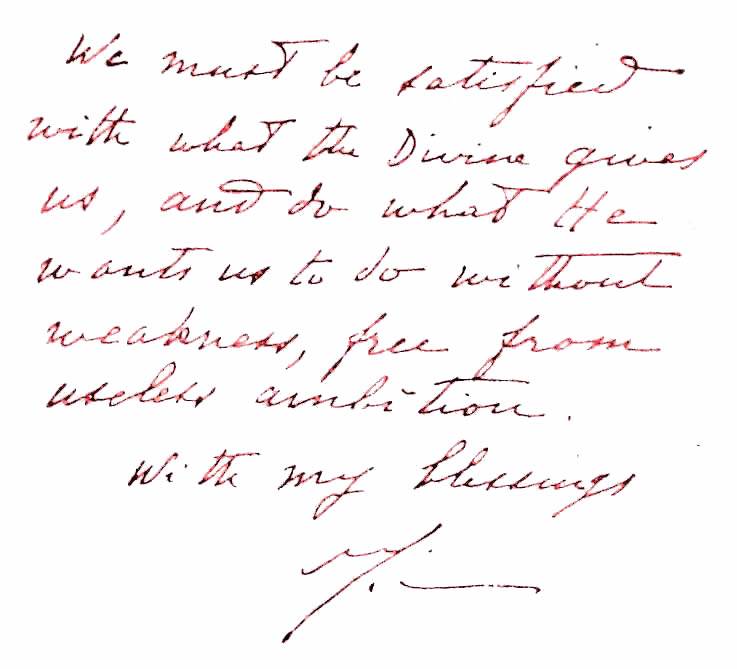 We must be satisfied
with what the Divine gives
us, and do what He
wants us to do without
weakness, free from
useless ambition.
With my blessings